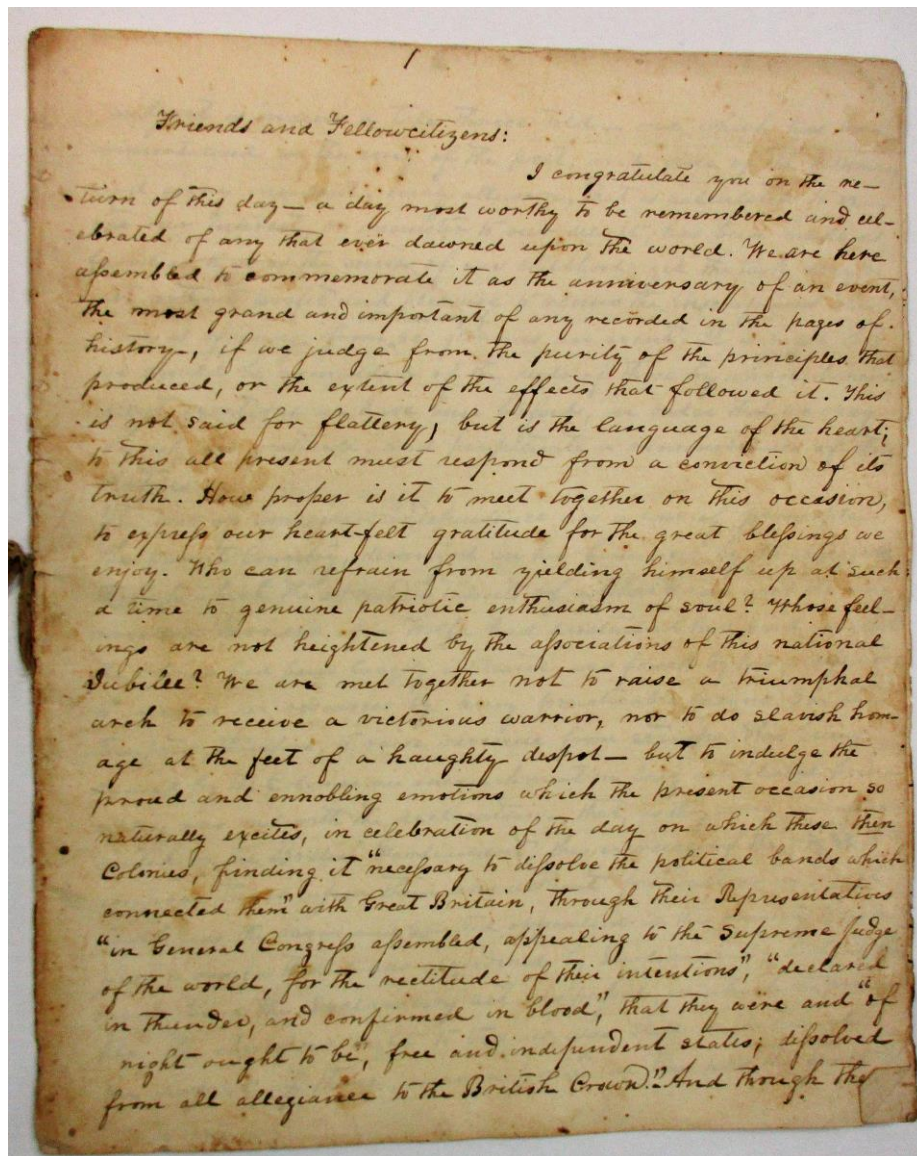 1
Friends and Fellowcitizens:
I congratulate you on the re—
turn of this day — a day most worthy to be remembered and cel—
ebrated of any that ever dawned upon the world. We are here
aſsembled to commemorate it as the anniversary of an event,
the most grand and important of any recorded in the pages of
history, if we judge from the purity of the principles that
produced, or the extent of the effects that followed it. This
is not said for flattery, but is the language of the heart;
to this all present must respond from a conviction of its
truth. How proper is it to meet together on this occasion,
to expreſs our heart-felt gratitude for the great bleſsings we
enjoy. Who can refrain from yielding himself up at such
a time to genuine patriotic enthusiasm of soul? Whose feel—
ings are not heightened by the aſsociations of this national
Jubilee? We are met together not to raise a triumphal
arch to receive a victorious warrior, nor to do slavish hom—
age at the feet of a haughty despot — but to indulge the
proud and ennobling emotions which the present occasion so
naturally excites, in celebration of the day on which these then
Colonies, finding it "neceſsary to diſsolve the political bands which
connected them" with Great Britain, through their Representatives
"in General Congreſs aſsembled, appealing to the Supreme Judge
of the world, for the rectitude of their intentions", "declared
in thunder, and confirmed in blood", that they were and "of
right ought to be", free and independent states; diſsolved
from all allegiance to the British Crown." And though the